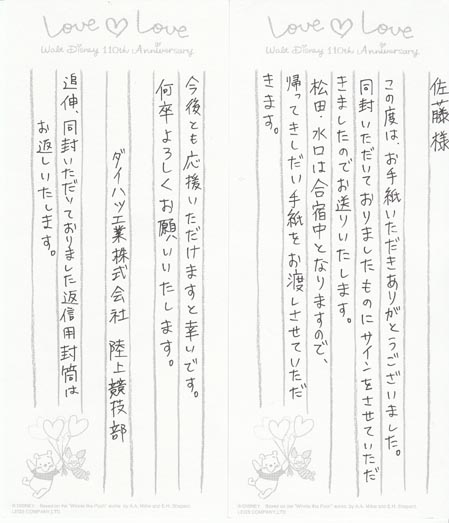 Love Love
Walt Disney 110th Anniversary
佐藤様
この度は、お手紙いただきありがとうございました。
同封いただいておりましたものにサインをさせていただ
きましたのでお送りいたします。
松田・水口は合宿中となりますので、
帰ってきしだい手紙をお渡しさせていただ
きます。
©DISNEY. Based on the "Winnie the Pooh" works, by A.A. Milne and E.H. Shepard.
Love Love
Walt Disney 110th Anniversary
今後とも応援いただけますと幸いです。
何卒よろしくお願いいたします。
ダイハツ工業株式会社 陸上競技部
追伸、同封いただいておりました返信用封筒は
お返しいたします。
©DISNEY. Based on the "Winnie the Pooh" works, by A.A. Milne and E.H. Shepard.